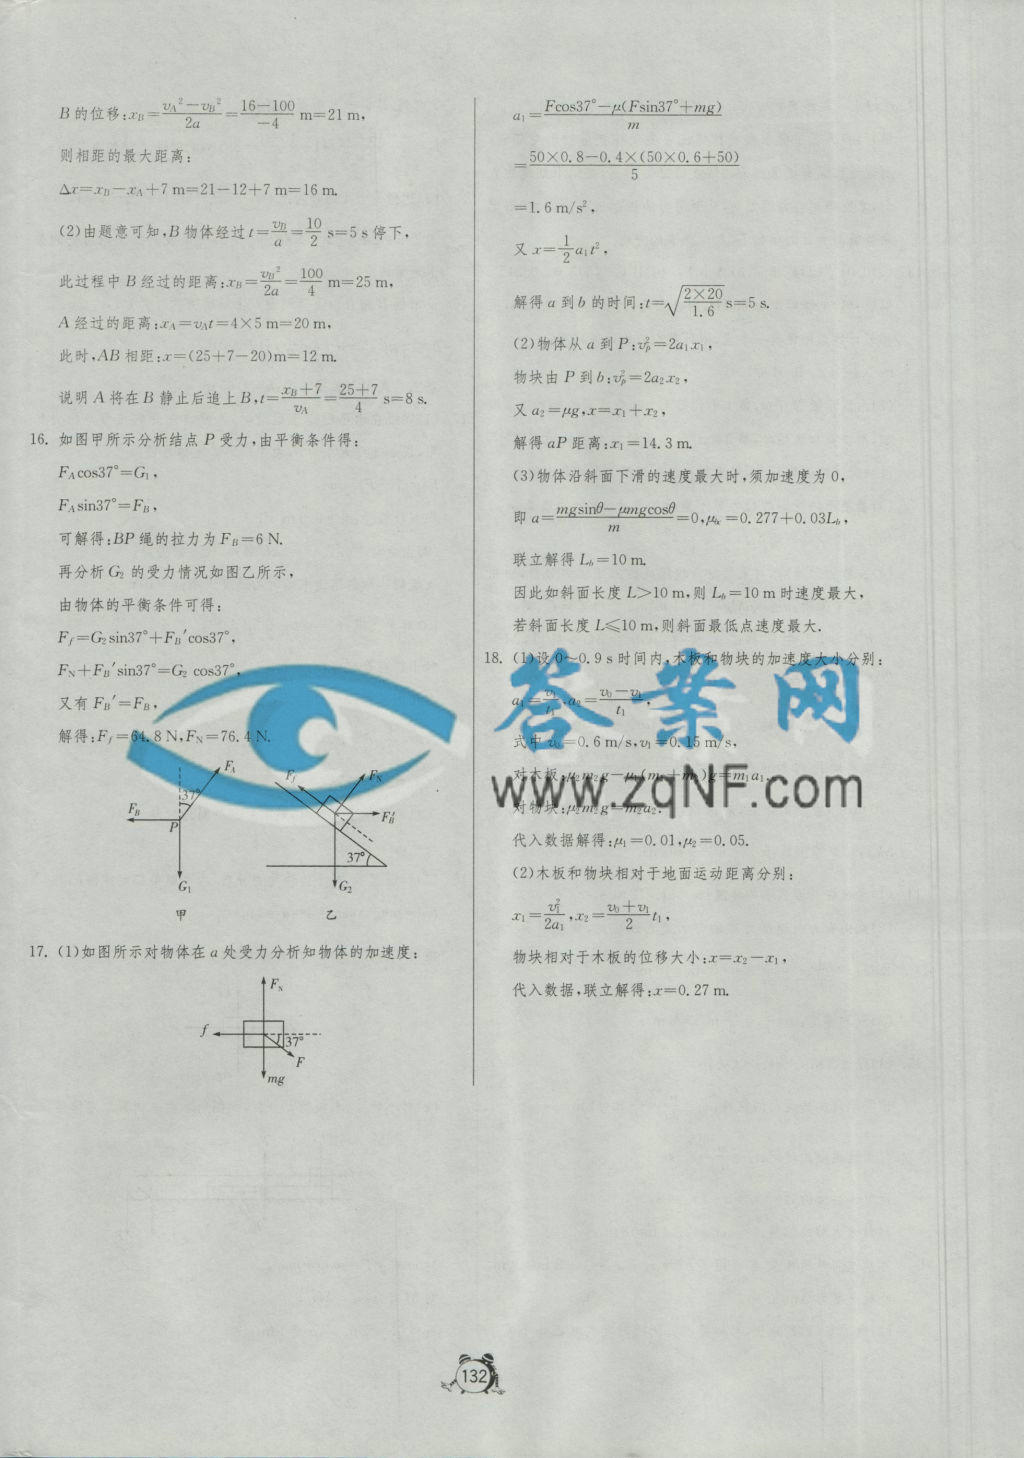 B的位移:x_B=(v_A²-v_B²)/2a=(16-100)/(-4) m=21 m,
则相距的最大距离:
Δx=x_B-x_A+7 m=21-12+7 m=16 m.
(2)由题意可知,B物体经过t=v_B/a=10/2 s=5 s停下,
此过程中B经过的距离:x_B=v_B²/2a=100/4 m=25 m,
A经过的距离:x_A=v_At=4×5 m=20 m,
此时,AB相距:x=(25+7-20)m=12 m.
说明A将在B静止后追上B,t=(x_B+7)/v_A=(25+7)/4 s=8 s.
16. 如图甲所示分析结点P受力,由平衡条件得:
F_Acos37°=G₁,
F_Asin37°=F_B,
可解得:BP绳的拉力为F_B=6 N.
再分析G₂的受力情况如图乙所示,
由物体的平衡条件可得:
F_f=G₂sin37°+F_B′cos37°,
F_N+F_B′sin37°=G₂cos37°,
又有F_B′=F_B,
解得:F_f=64.8 N,F_N=76.4 N.
F_A
37°
F_B
P
G₁
甲
F_f
F_N
F_B′
37°
G₂
乙
17. (1)如图所示对物体在a处受力分析知物体的加速度:
F_N
f
37°
F
mg
a₁=(Fcos37°-μ(Fsin37°+mg))/m
=(50×0.8-0.4×(50×0.6+50))/5
=1.6 m/s²,
又x=1/2 a₁t²,
解得a到b的时间:t=√(2×20/1.6) s=5 s.
(2)物体从a到P:v_P²=2a₁x₁,
物块由P到b:v_P²=2a₂x₂,
又a₂=μg,x=x₁+x₂,
解得aP距离:x₁=14.3 m.
(3)物体沿斜面下滑的速度最大时,须加速度为0,
即a=(mgsinθ-μmgcosθ)/m=0,μ_bc=0.277+0.03L_b,
联立解得L_b=10 m.
因此如斜面长度L>10 m,则L_b=10 m时速度最大,
若斜面长度L≤10 m,则斜面最低点速度最大.
18. (1)设0~0.9 s时间内,木板和物块的加速度大小分别:
a₁=v₁/t₁,a₂=(v₀-v₁)/t₁,
式中v₀=0.6 m/s,v₁=0.15 m/s,
对木板:μ₂m₂g-μ₁(m₁+m₂)g=m₁a₁.
对物块:μ₂m₂g=m₂a₂.
代入数据解得:μ₁=0.01,μ₂=0.05.
(2)木板和物块相对于地面运动距离分别:
x₁=v₁²/2a₁,x₂=(v₀+v₁)/2 t₁,
物块相对于木板的位移大小:x=x₂-x₁,
代入数据,联立解得:x=0.27 m.
答案网
www.zqNF.com
132